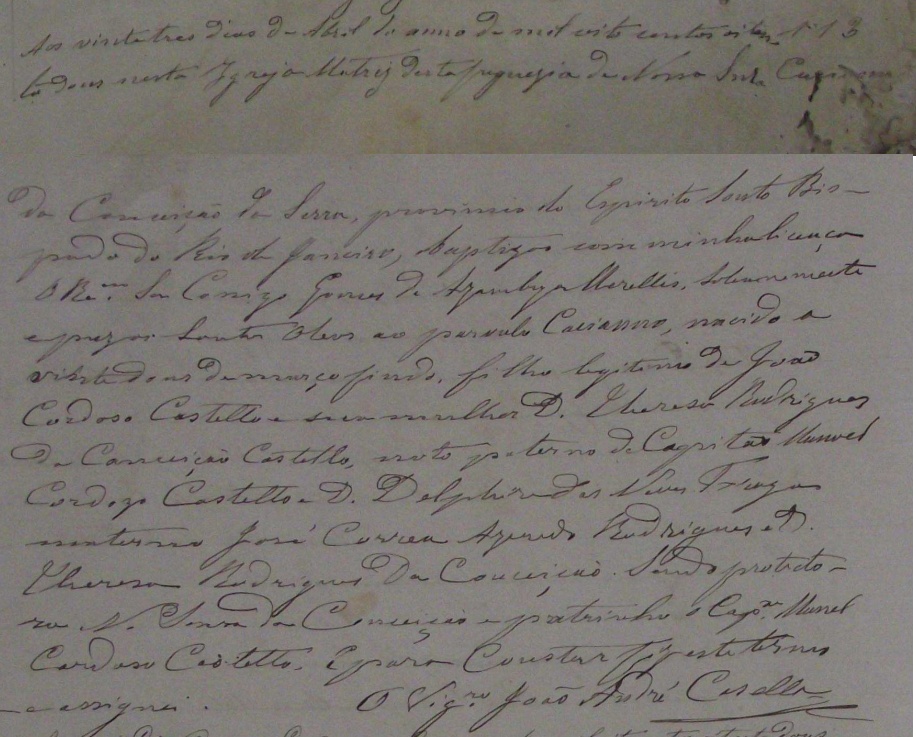 Aos vinte tres dias de Abril do anno de mil oito centos oiten- Nº 13
ta dous nesta Igreja Matriz desta freguezia de Nossa Snrª Cassiano
da Conceição da Serra, provincia do Espirito Santo Bis-
pado do Rio de Janeiro, baptizou com minha licença
O Rev.mo Snr Conego Gomes de Azambuja Meirelles, solemnemente
e poz os Santos Oleos ao parvulo Cassiano, nascido a
vinte dous de março findo, filho legitimo de João
Cardoso Castello e sua mulher D. Thereza Rodrigues
da Conceição Castello, neto paterno do Capitão Manoel
Cardozo Castello e D. Delphina das Neves Fraga
materno José Correa Azeredo Rodrigues e D.
Thereza Rodrigues Da Conceição. Sendo protecto-
ra N. Senra da Conceição e padrinho o Capm. Manoel
Cardoso Castello. E para Constar fiz este termo
e assignei. O Vig.ro João André Casella